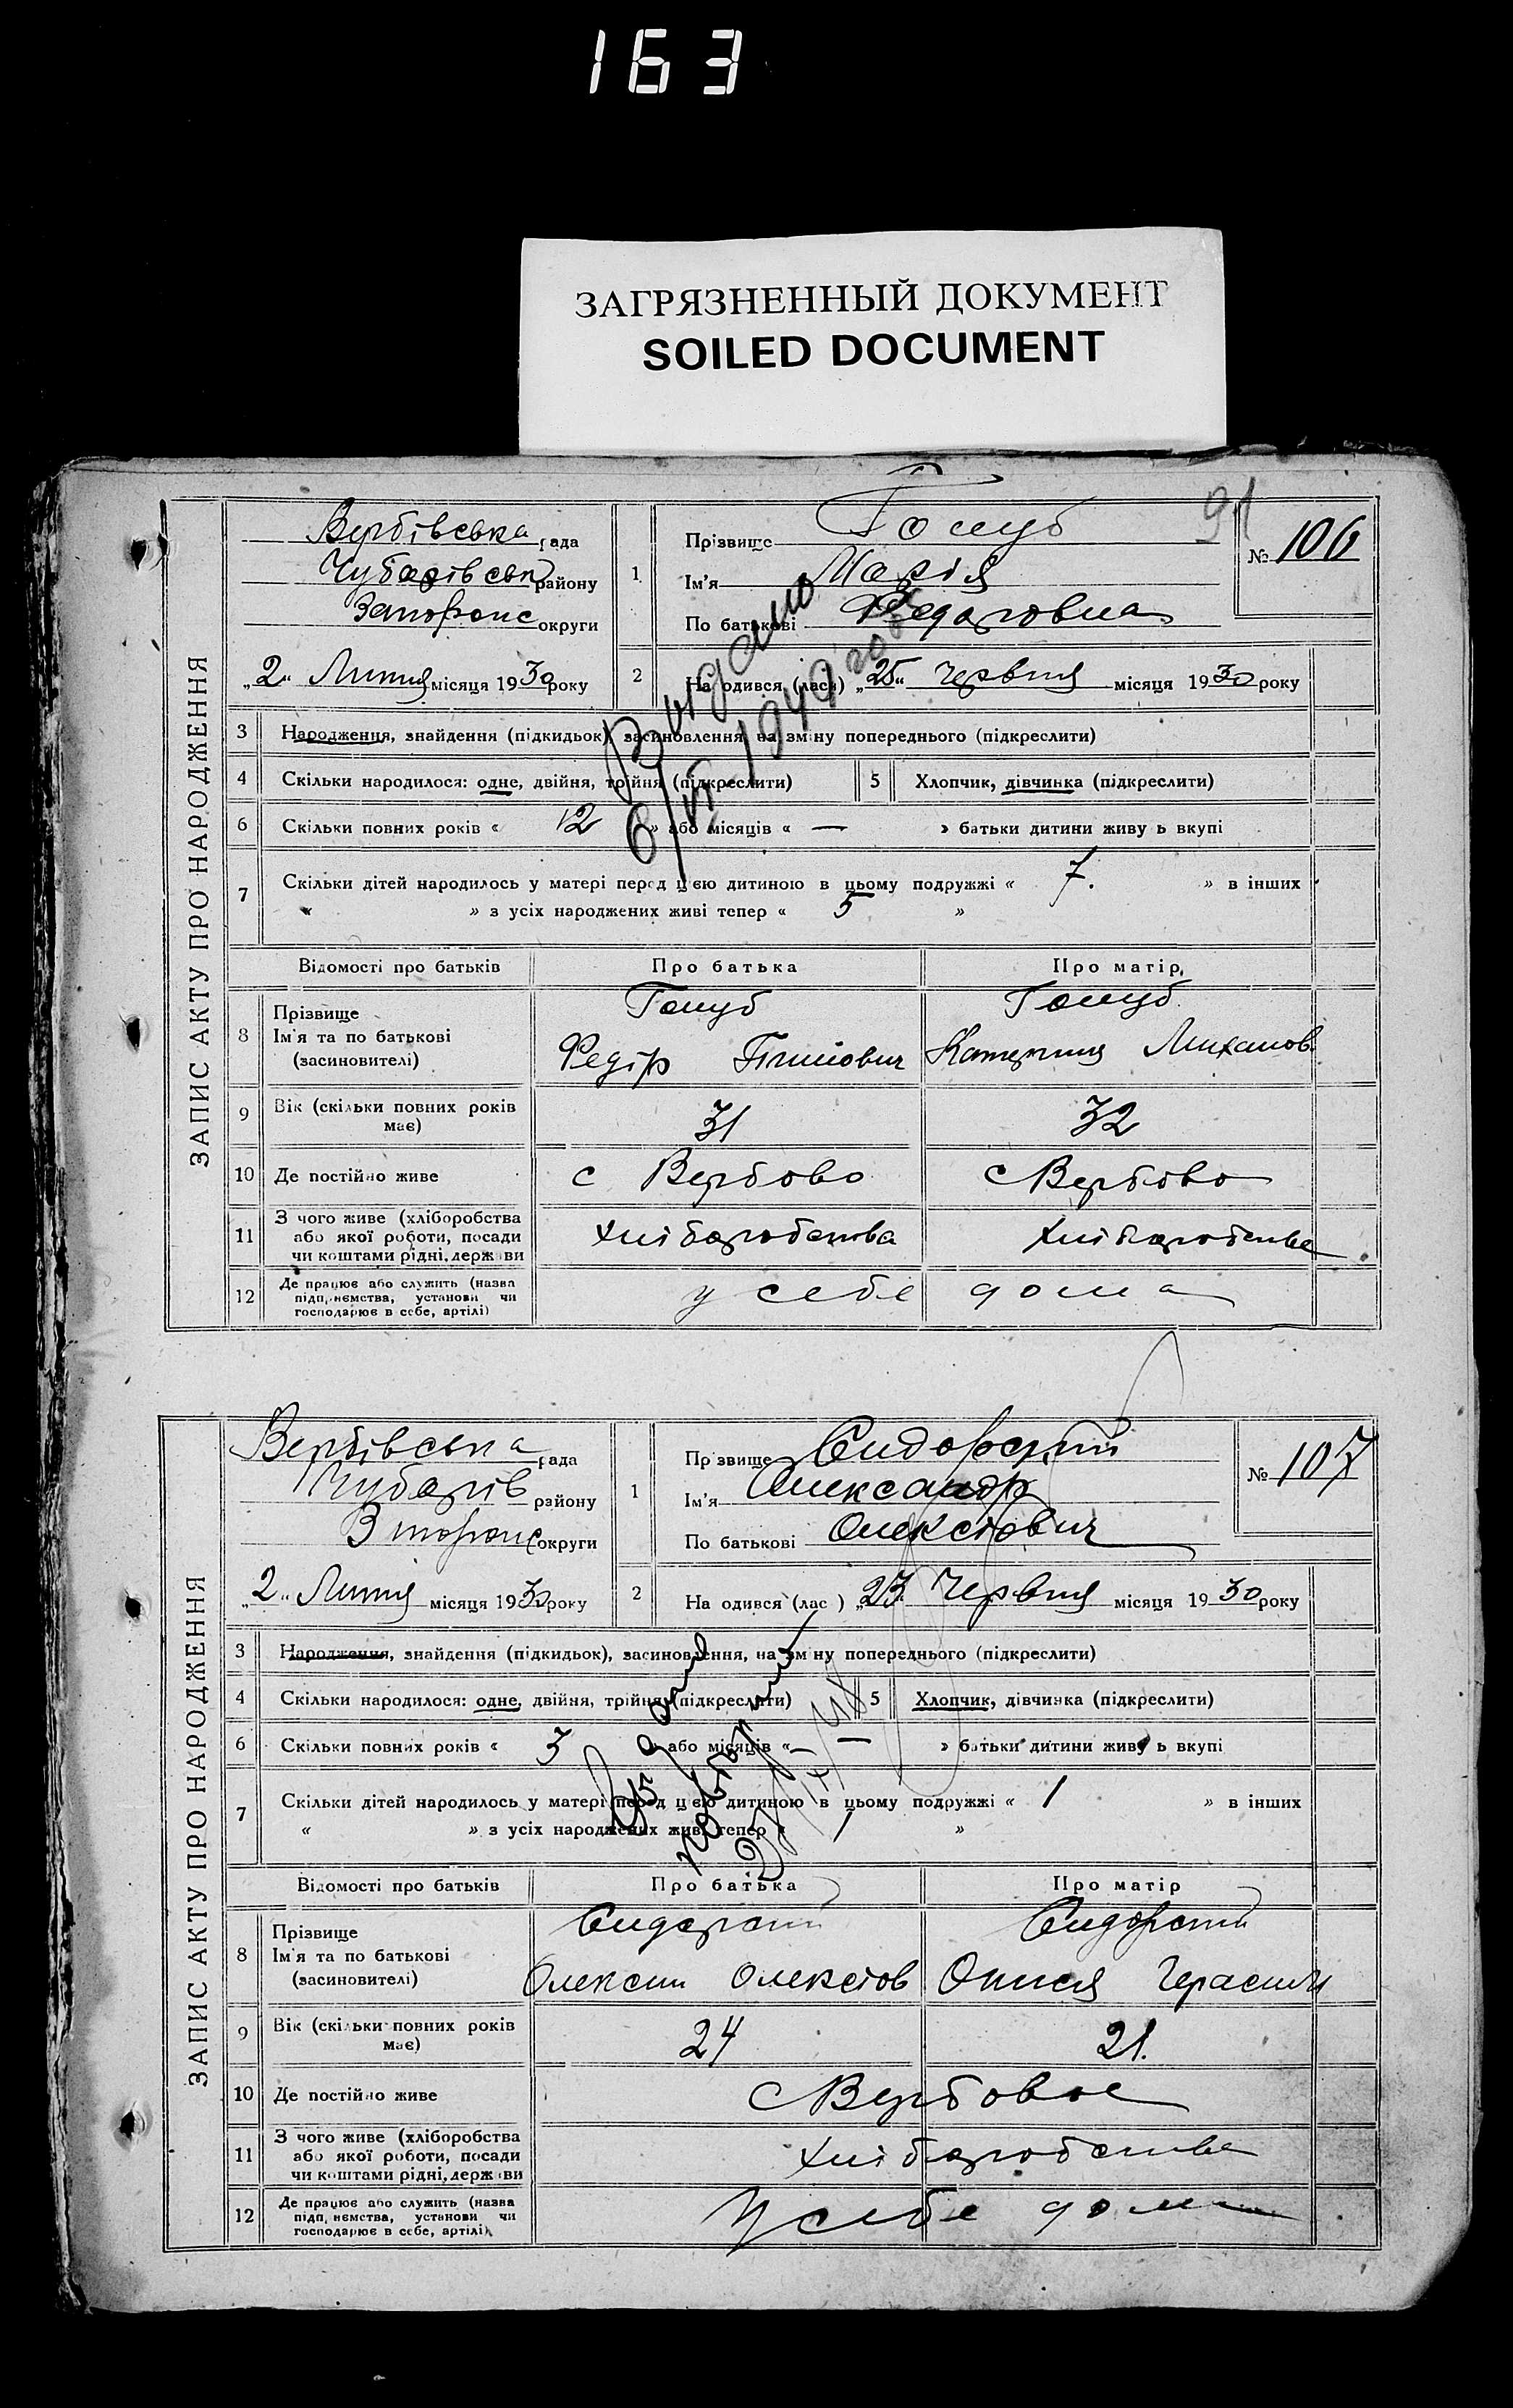 163
ЗАГРЯЗНЕННЫЙ ДОКУМЕНТ
SOILED DOCUMENT
91
ЗАПИС АКТУ ПРО НАРОДЖЕННЯ
Вербівська рада
Чубарівськ району
Запоріжс округи
„2“ Липня місяця 1930 року
1 Прізвище Голуб
Ім'я Марія
По батькові Федоровна
№ 106
2 На одився (лась) „25“ Червня місяця 1930 року
3 Народження, знайдення (підкидьок), засиновлення, на зміну попереднього (підкреслити)
4 Скільки народилося: одне, двійня, трійня (підкреслити) 5 Хлопчик, дівчинка (підкреслити)
6 Скільки повних років « 12 » або місяців « — » батьки дитини живу ь вкупі
7 Скільки дітей народилось у матері перед цією дитиною в цьому подружжі « 7. » в інших
« » з усіх народжених живі тепер « 5 »
Выдано
6/VI-1949 года
Відомості про батьків Про батька Про матір
8 Прізвище Голуб Голуб
Ім'я та по батькові Федір Катерина Михайлов
(засиновителі)
9 Вік (скільки повних років має) 31 32
10 Де постійно живе с Вербово с Вербово
11 З чого живе (хліборобства або якої роботи, посади чи коштами рідні, держави Хліборобства Хліборобства
12 Де працює або служить (назва підприємства, установи чи господарює в себе, артілі) у себе дома
ЗАПИС АКТУ ПРО НАРОДЖЕННЯ
Вербівська рада
Чубарів району
округи
„2“ Липня місяця 1930 року
1 Прізвище Сидорский
Ім'я Александр
По батькові Олексієвич
№ 107
2 На одився (лас ) „23“ Червня місяця 1930 року
3 Народження, знайдення (підкидьок), засиновлення, на зміну попереднього (підкреслити)
4 Скільки народилося: одне, двійня, трійня (підкреслити) 5 Хлопчик, дівчинка (підкреслити)
6 Скільки повних років « 3 » або місяців « — » батьки дитини живу ь вкупі
7 Скільки дітей народилось у матері перед цією дитиною в цьому подружжі « 1 » в інших
« » з усіх народжених живі тепер « 1 »
Выдано
повторный
Відомості про батьків Про батька Про матір
8 Прізвище Сидорский Сидорский
Ім'я та по батькові Олексии Олексіов Герасим
(засиновителі)
9 Вік (скільки повних років має) 24 21.
10 Де постійно живе с Вербовое
11 З чого живе (хліборобства або якої роботи, посади чи коштами рідні, держави Хліборобства
12 Де працює або служить (назва підприємства, установи чи господарює в себе, артілі) У себе дома